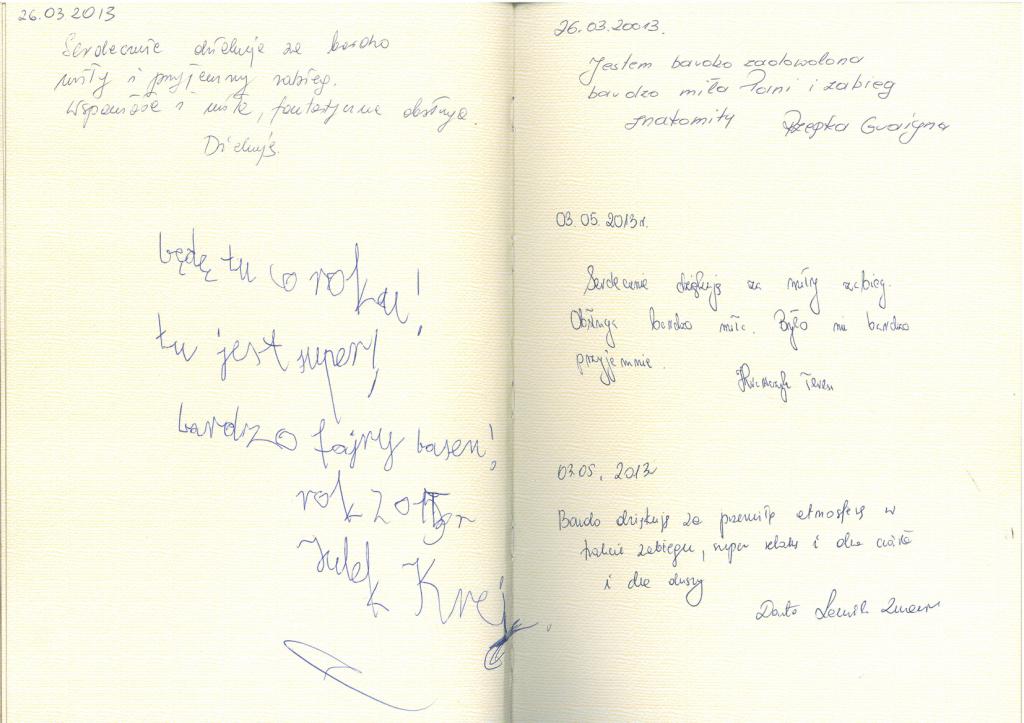 26.03 2013
Serdecznie dziękuję za bardzo
miły i przyjemny zabieg.
Wspaniała i miła, fantastyczna obsługa.
Dziękuję.
będę tu co roku!
tu jest super!
bardzo fajny basen!
rok 20
Julek Krej
26.03.20013.
Jestem bardzo zadowolona
bardzo miła Pani i zabieg
znakomity Rzepka
03.05.2013r.
Serdecznie dziękuję za miły zabieg.
Obsługa bardzo miła. Było mi bardzo
przyjemnie.
03.05.2013r
Bardo dziękuję za przemiłą atmosferę w
trakcie zabiegu, super relaks i dla ciała
i dla duszy